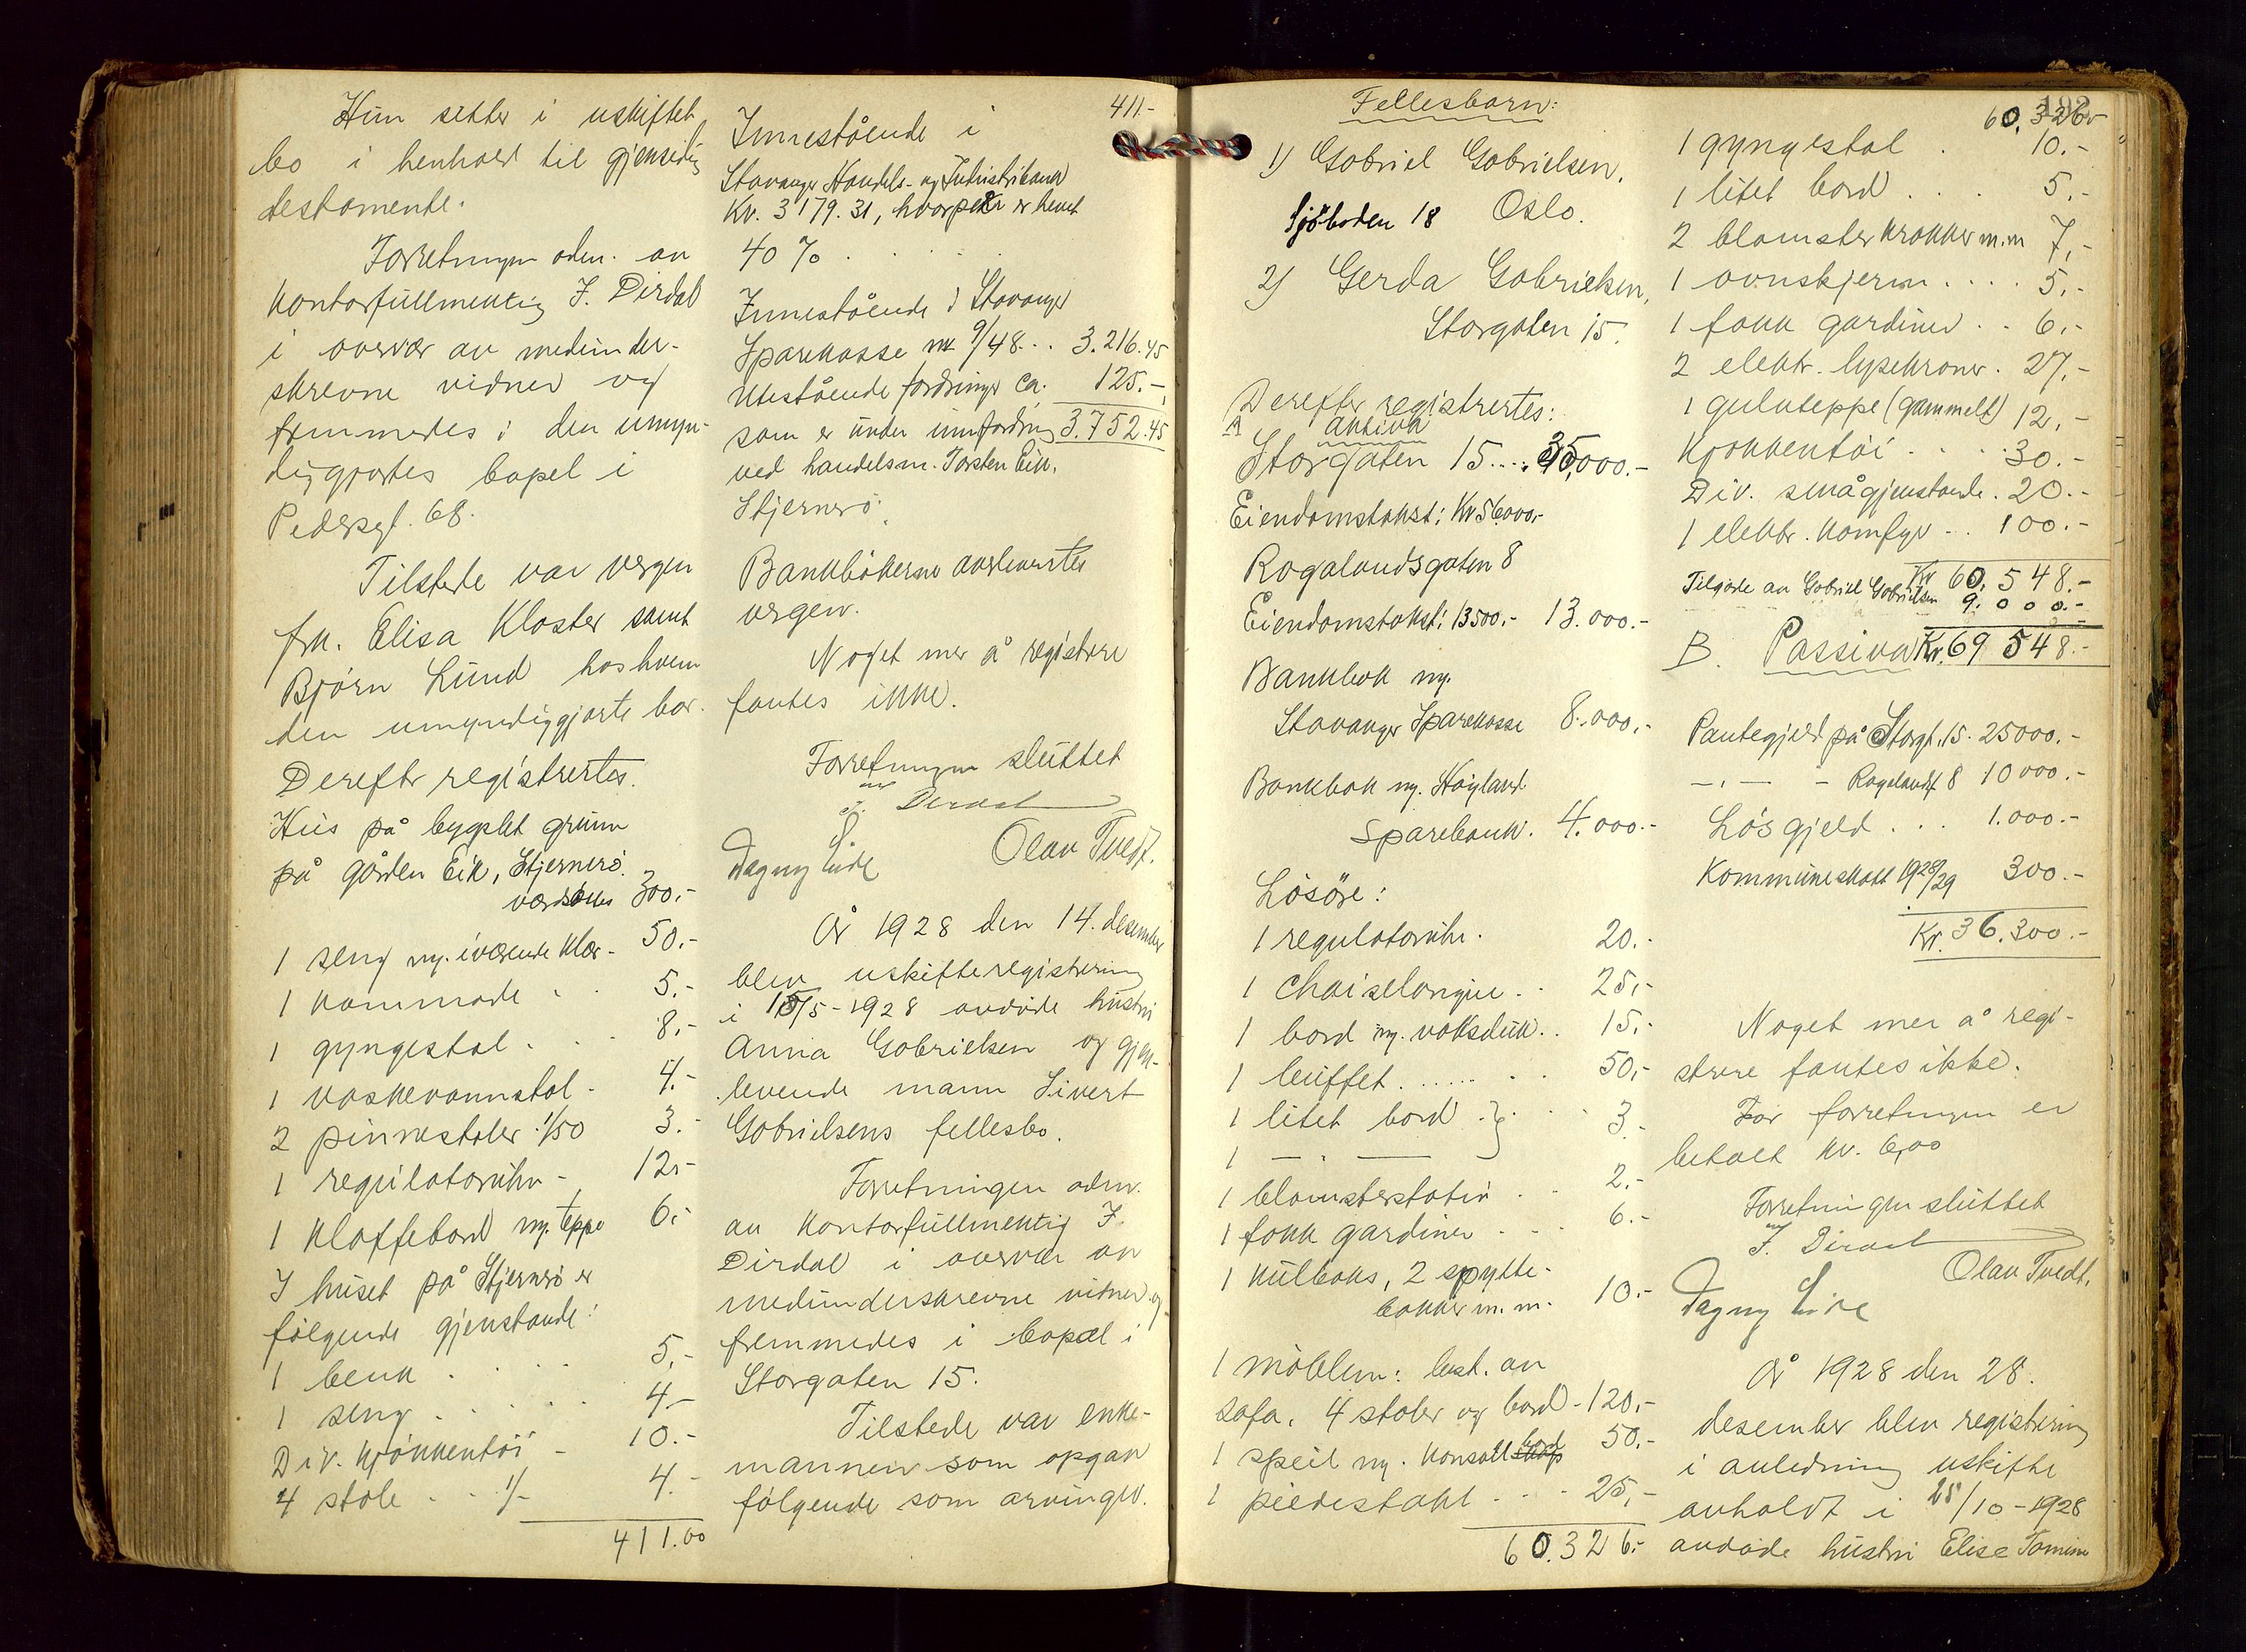 Hun sitter i uskiftet
bo i henhold til gjensidig
testamente.
Forretningen adm. av
kontorfullmektig J. Dirdal
i overvær av medunder-
skrevne vidner og
fremmedes i den umyn-
diggjortes bopel i
Pedersgt. 68.
Tilstede var vergen
frk. Elisa Kloster samt
Bjørn Lund hos hvem
den umyndiggjorte bor.
Derefter registrertes.
Hus på bygslet grunn
på gården Eik, Stjernerö.
verdsættes 300.-
1 seng m. iværende klær - 50.-
1 kommode . . 5.-
1 gyngestol . . . 8.-
1 vaskevannstol - 4.-
2 pinnestoler 1/50 3.-
1 regulatoruhr - 12.-
1 klaffebord m. teppe 6.-
I huset på Stjernerö er
følgende gjenstande:
1 benk . . . . 5.-
1 seng . . . . . 4.-
Div. kjøkkentöi - 10.-
4 stole . . 1/- 4.-
411.00
411.-
Innestående i
Stavanger Handels- og Industribank
Kr. 3179.31, hvorpå er hevet
40 % . . . .
Innestående i Stavanger
Sparekasse pr. 9/48 . . 3.216.45
Utestående fordringer ca. 125.-
som er under innfordring 3.752.45
ved handelsm. Torsten Eik,
Stjernerö.
Bankbökerne overleveretes
vergen.
Noget mer å registrere
fantes ikke.
Forretningen sluttet
J. Dirdal
Dagny Lide Olav Tvedt.
År 1928 den 14. desember
blev uskifteregistrering
i 15/5-1928 avdöde hustru
Anna Gabrielsen og gjen-
levende mann Sivert
Gabrielsens fellesbo.
Forretningen adm.
av kontorfullmektig J.
Dirdal i overvær av
medunderskrevne vitner og
fremmedes i bopæl i
Storgaten 15.
Tilstede var enke-
mannen som opgav
følgende som arvinger.
Fellesbarn:
1) Gabriel Gabrielsen,
Sjöboden 18 Oslo.
2) Gerda Gabrielsen,
Storgaten 15.
Derefter registrertes:
A Aktiva
Storgaten 15 .... 35,000.-
Eiendomstakst: Kr 56000,-
Rogalandsgaten 8
Eiendomstakst: 13500.- 13.000.-
Bankbok m.
Stavanger Sparekasse 8.000.-
Bankbok m. Høyland
Sparebank. 4.000.-
Lösöre:
1 regulatoruhr. 20.-
1 chaiselongue . . 25,-
1 bord m. voksduk . . 15.-
1 buffet ...... . . 50,-
1 litet bord . } . . . 3.-
1 — " —
1 blomsterstativ . . 2.-
1 fakk gardiner . . . 6.-
1 kulboks, 2 spytte-
bakker m. m. 10.-
1 möblem: best. av
sofa, 4 stoler og bord - 120,-
1 speil m. konsollbord 50.-
1 piedestahl . . . 25,-
60.326.-
60.326.-
1 gyngestol . 10.-
1 litet bord . . . 5.-
2 blomsterkrakker m.m 7,-
1 ovnskjerm . . . . 5,-
1 fakk gardiner . . 6,-
2 elektr. lysekroner . 27,-
1 gulvteppe (gammelt) 12,-
Kjøkkentöi . . . . 30.-
Div. smågjenstande . 20.-
1 elektr. komfyr . . 100.-
Kr 60,548.-
Tilgode av Gabriel Gabrielsen 9.000.-
B. Passiva Kr. 69 548.-
Pantegjeld på Storgt. 15. 25000.-
— " — - Rogalandsgt 8 10000.-
Lösgjeld . . . 1.000.-
Kommuneskatt 1928/29 300.-
Kr. 36.300.-
Noget mer å regi-
strere fantes ikke.
For forretningen er
betalt kr. 6,00
Forretningen sluttet
J. Dirdal
Olav Tvedt.
Dagny Lide
År 1928 den 28.
desember blev registrering
i anledning uskifte
avholdt i 25/10-1928
avdöde hustru Elise Tomine